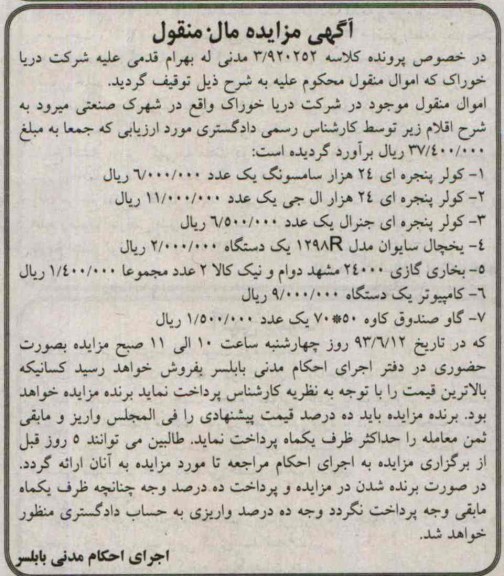 آگهی مزایده مال منقول
در خصوص پرونده کلاسه ۳/۹۲۰۲۵۲ مدنی له بهرام قدمی علیه شرکت دریا
خوراک که اموال منقول محکوم علیه به شرح ذیل توقیف گردید.
اموال منقول موجود در شرکت دریا خوراک واقع در شهرک صنعتی میرود به
شرح اقلام زیر توسط کارشناس رسمی دادگستری مورد ارزیابی که جمعا به مبلغ
۳۷/۴۰۰/۰۰۰ ریال برآورد گردیده است:
۱- کولر پنجره ای ۲۴ هزار سامسونگ یک عدد ۶/۰۰۰/۰۰۰ ریال
۲- کولر پنجره ای ۲۴ هزار ال جی یک عدد ۱۱/۰۰۰/۰۰۰ ریال
۳- کولر پنجره ای جنرال یک عدد ۶/۵۰۰/۰۰۰ ریال
۴- یخچال سایوان مدل ۱۲۹۸R یک دستگاه ۲/۰۰۰/۰۰۰ ریال
۵- بخاری گازی ۲۴۰۰۰ مشهد دوام و نیک کالا ۲ عدد مجموعا ۱/۴۰۰/۰۰۰ ریال
۶- کامپیوتر یک دستگاه ۹/۰۰۰/۰۰۰ ریال
۷- گاو صندوق کاوه ۵۰*۷۰ یک عدد ۱/۵۰۰/۰۰۰ ریال
که در تاریخ ۹۳/۶/۱۲ روز چهارشنبه ساعت ۱۰ الی ۱۱ صبح مزایده بصورت
حضوری در دفتر اجرای احکام مدنی بابلسر بفروش خواهد رسید کسانیکه
بالاترین قیمت را با توجه به نظریه کارشناس پرداخت نماید برنده مزایده خواهد
بود. برنده مزایده باید ده درصد قیمت پیشنهادی را فی المجلس واریز و مابقی
ثمن معامله را حداکثر ظرف یکماه پرداخت نماید. طالبین می توانند ۵ روز قبل
از برگزاری مزایده به اجرای احکام مراجعه تا مورد مزایده به آنان ارائه گردد.
در صورت برنده شدن در مزایده و پرداخت ده درصد وجه چنانچه ظرف یکماه
مابقی وجه پرداخت نگردد وجه ده درصد واریزی به حساب دادگستری منظور
خواهد شد.
اجرای احکام مدنی بابلسر